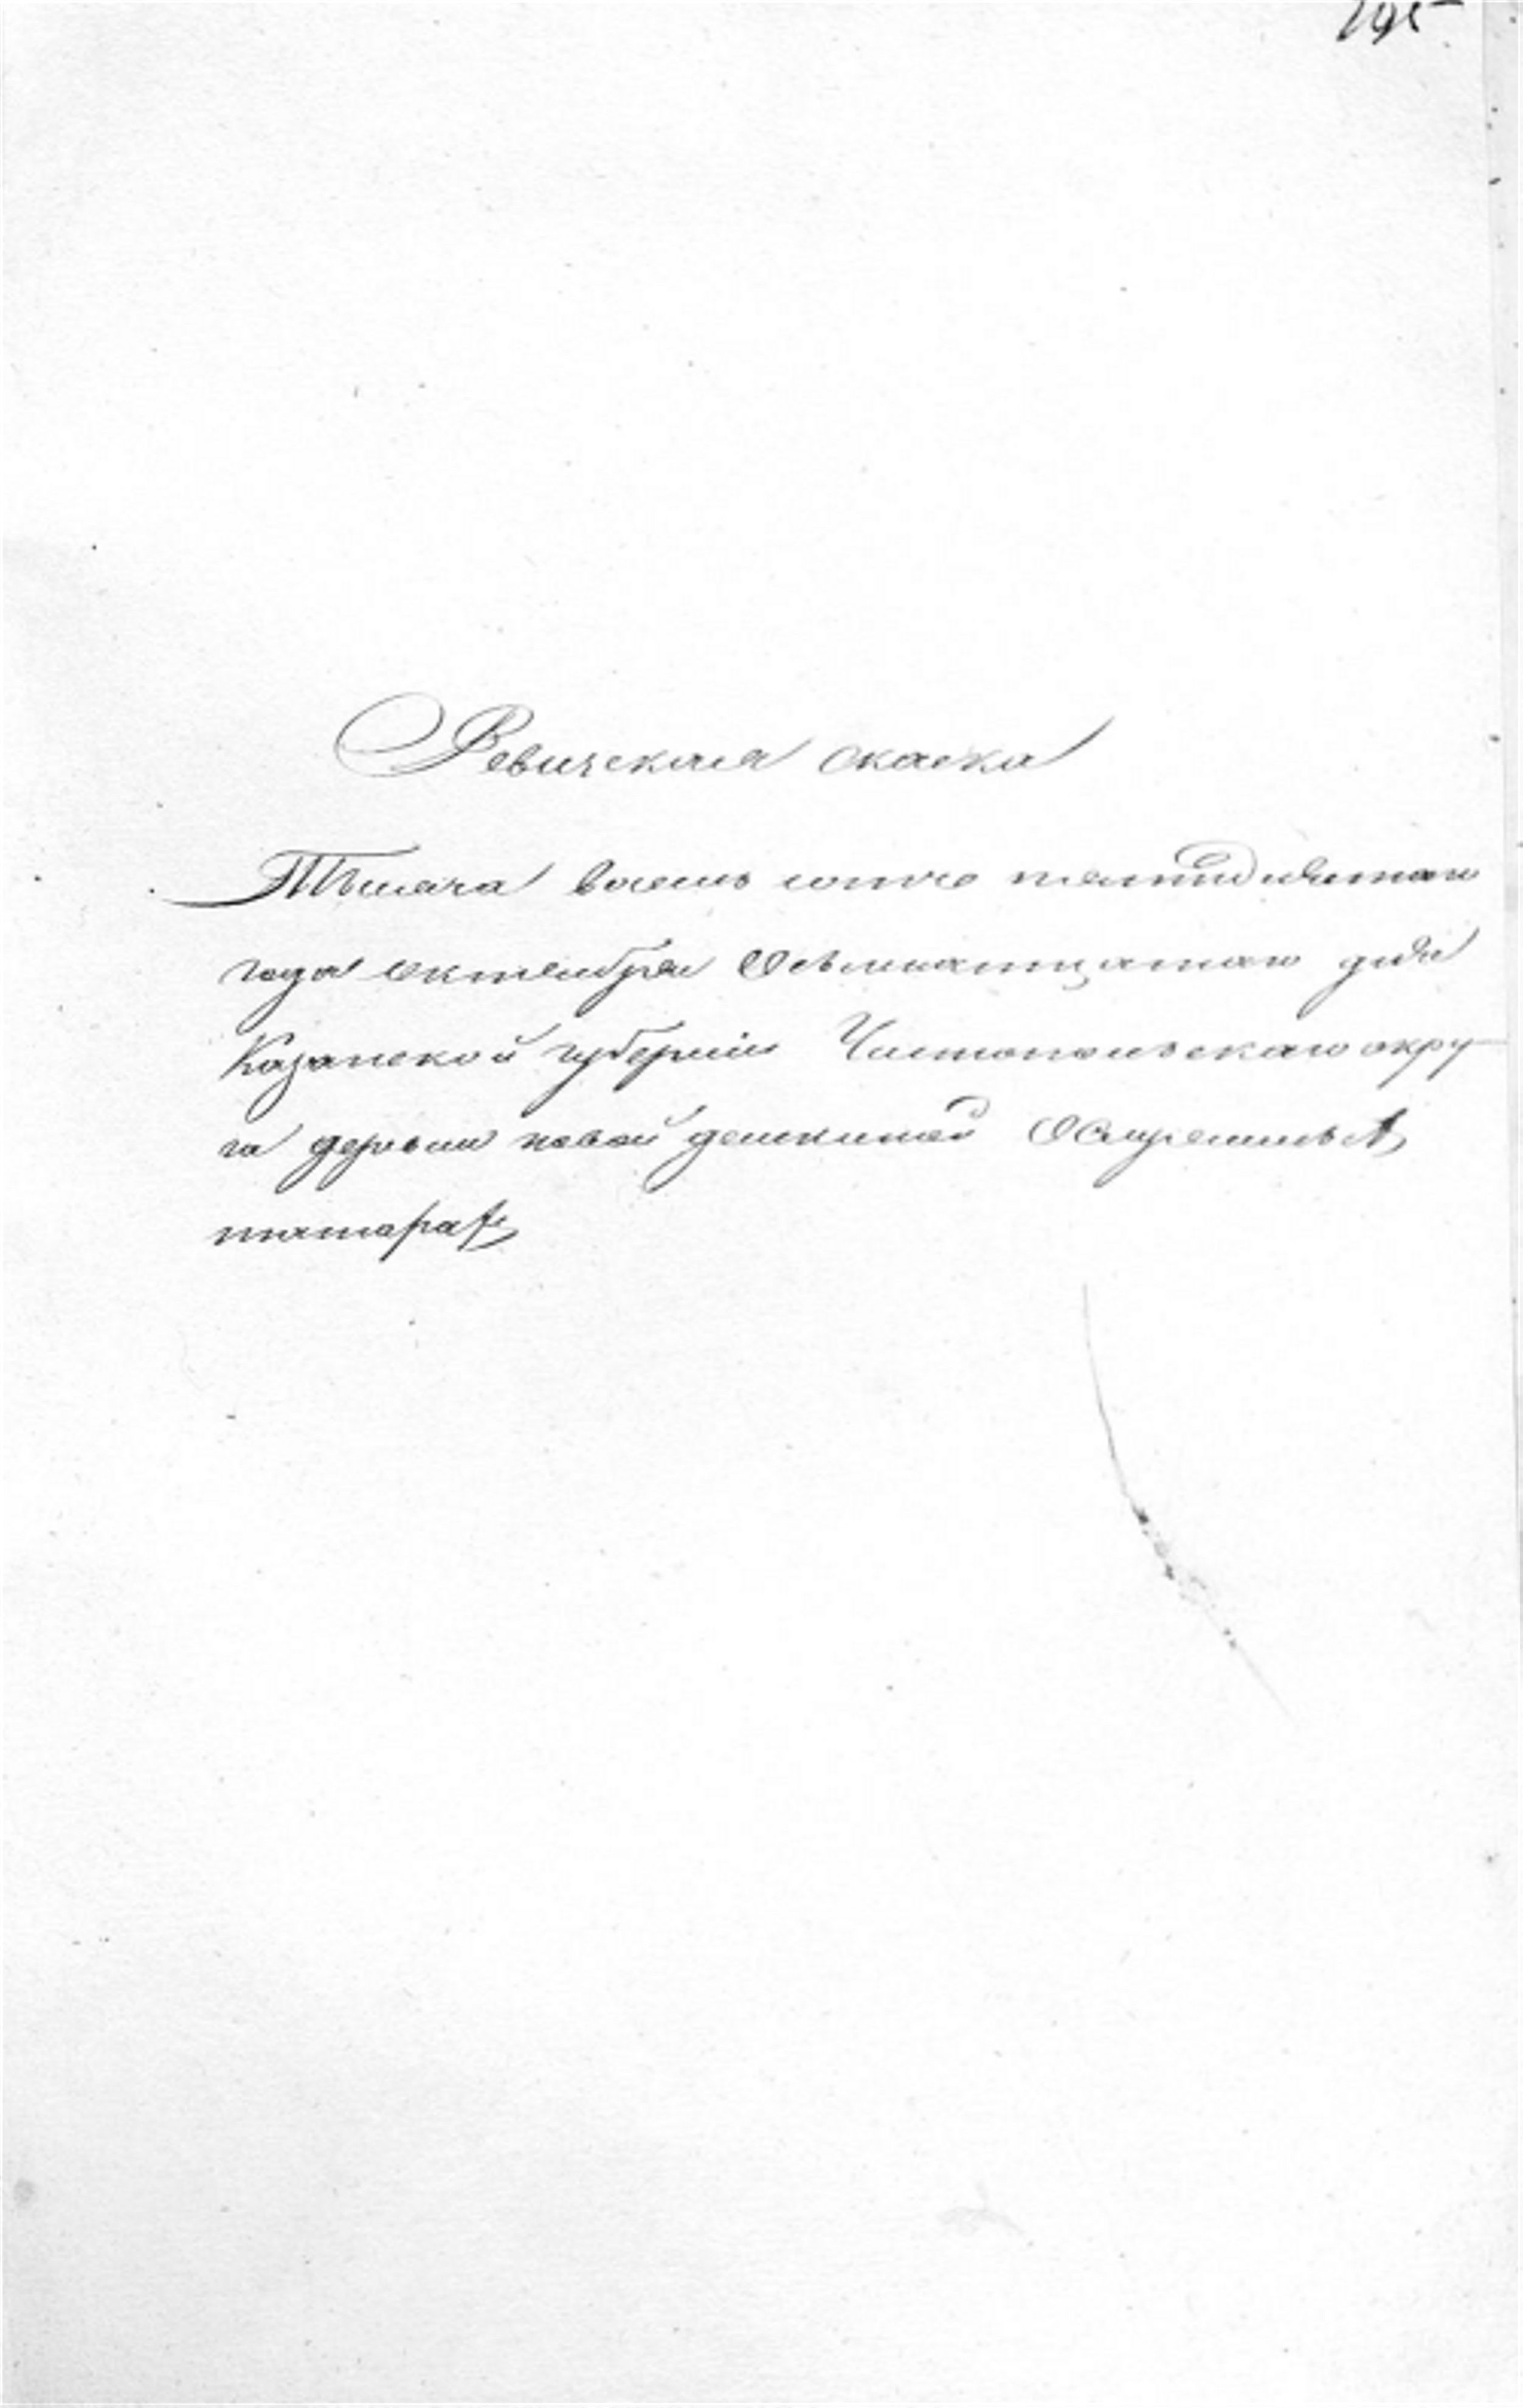 195
Ревизская сказка
Тысяча восемь сотъ пятидесятаго
года октября Осьмнатцатаго дня
Казанской губернии Чистопольскаго окру
га деревни новой демкиной О крещеныхъ
татарахъ